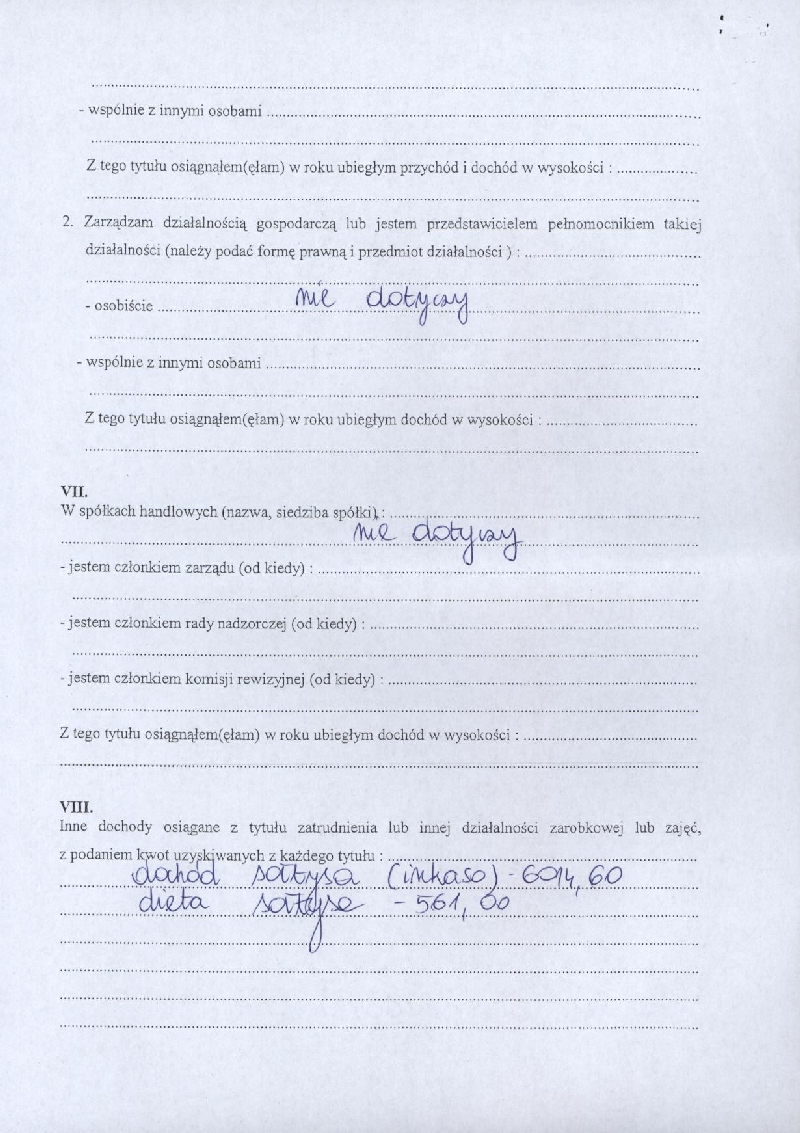 - wspólnie z innymi osobami
Z tego tytułu osiągnąłem(ęłam) w roku ubiegłym przychód i dochód w wysokości :
2. Zarządzam działalnością gospodarczą lub jestem przedstawicielem pełnomocnikiem takiej
działalności (należy podać formę prawną i przedmiot działalności ) :
- osobiście nie dotyczy
- wspólnie z innymi osobami
Z tego tytułu osiągnąłem(ęłam) w roku ubiegłym dochód w wysokości :
VII.
W spółkach handlowych (nazwa, siedziba spółki) :
nie dotyczy
- jestem członkiem zarządu (od kiedy) :
- jestem członkiem rady nadzorczej (od kiedy) :
- jestem członkiem komisji rewizyjnej (od kiedy) :
Z tego tytułu osiągnąłem(ęłam) w roku ubiegłym dochód w wysokości :
VIII.
Inne dochody osiągane z tytułu zatrudnienia lub innej działalności zarobkowej lub zajęć,
z podaniem kwot uzyskiwanych z każdego tytułu :
dochód sołtysa (inkaso) - 6014,60
dieta sołtysa - 561,00